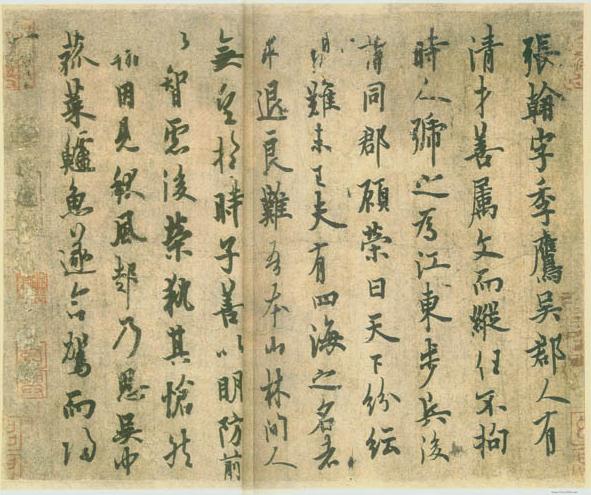 張翰字季鷹吳郡人有
清才善屬文而縱任不拘
時人號之為江東步兵後
謂同郡顧榮曰天下紛紜
難未已夫有四海之名者
求退良難吾本山林間人
無望於時子善以明防前
以智慮後榮執其愴然
翰因見秋風起乃思吳中
菰菜鱸魚遂命駕而歸